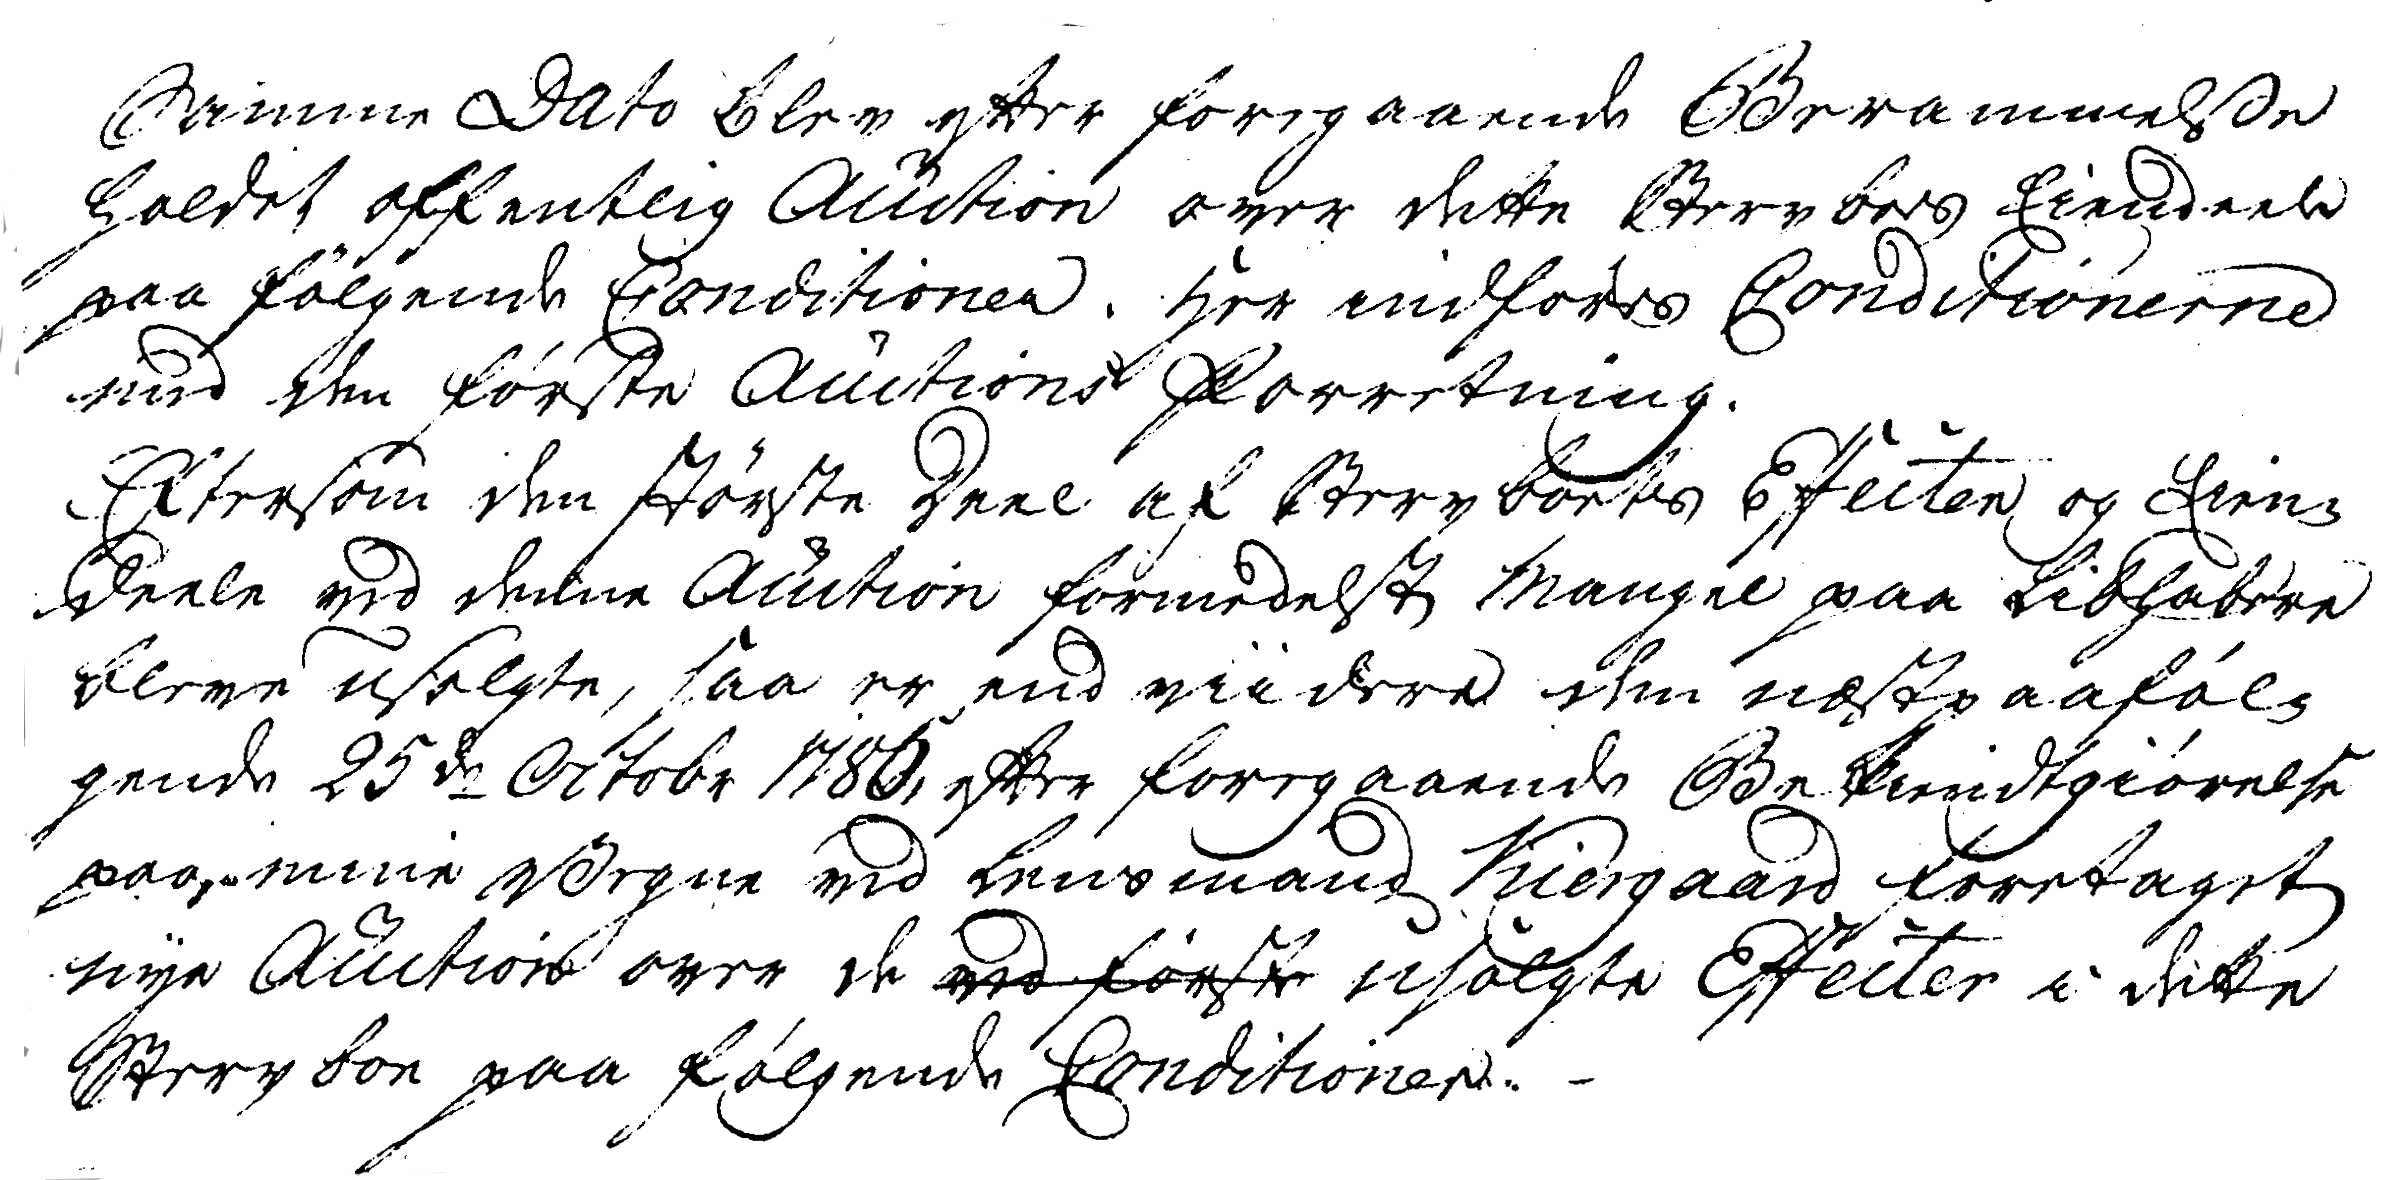 Samme Dato blev efter foregaaende Berammelse
holdet offentlig Auction over dette Stervboes Eiendeele
paa følgende Conditioner. Her indføres Conditionerne
med den første Auctions Forretning.
Eftersom den største Deel af Stervboets Effecter og Eien=
deele ved denne Auction formedelst Mangel paa Liebhabere
bleve usolgte, saa er end viidere den næstpaaføl=
gende 25de Octobr 1785, efter foregaaende Bekiendtgiørelse
paa mine Vegne ved Lensmand Kiergaard foretaget
nye Auction over de ved første usolgte Effecter i dette
Stervboe paa følgende Conditioner. -